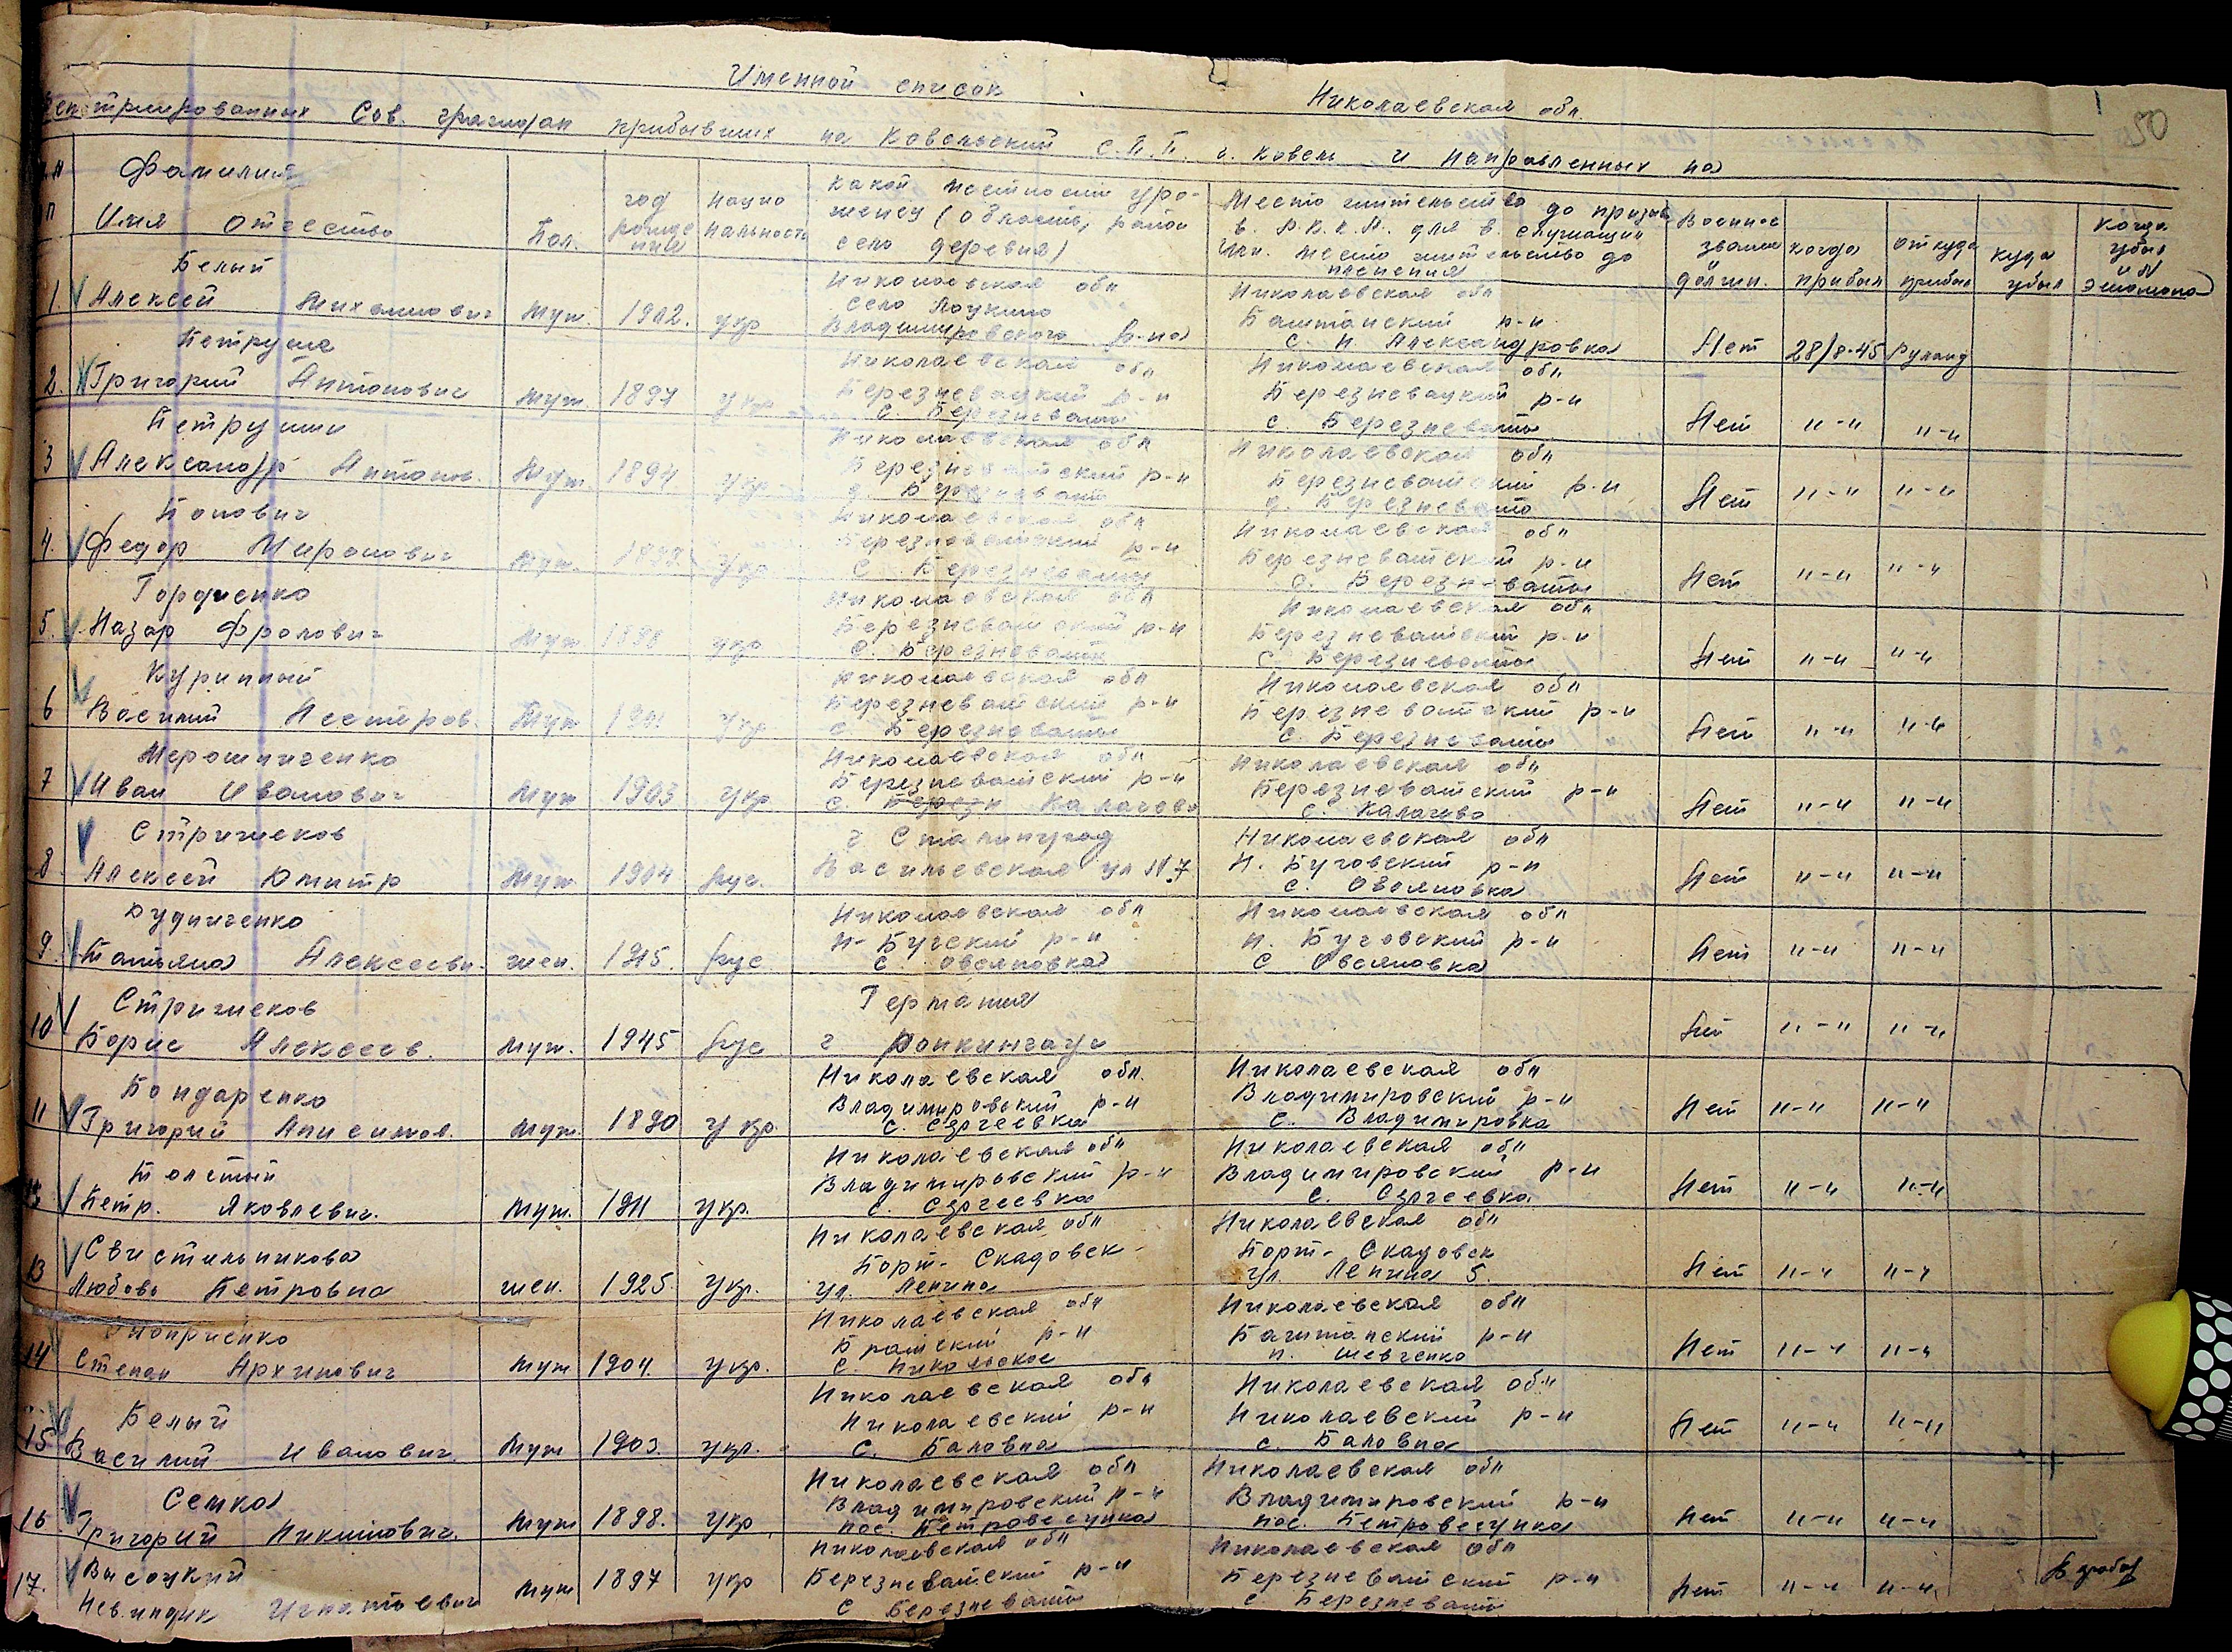 50
Именной список
Репатриированных Сов. граждан прибывших на Ковельский С.П.П. г. Ковель и направленных на Николаевская обл.
Фамилия Имя Отчество | Пол. | год рождения | Национальность | какой местности уроженец (область, район село деревня) | Место жительства до призыва в Р.К.К.А. для в. служащих или место жительства до пленения | Военное звание должн. | когда прибыл | откуда прибыл | куда убыл | Когда убыл и № эшелона
1. Белый
Алексей Михайлович муж. 1902. укр
Николаевская обл
село
Владимировского р-на
Николаевская обл
Баштанский р-н
с. Н. Александровка
Нет 28/8-45
2. Григорий Антонович муж. 1897 укр
Николаевская обл
Березневацкий р-н
с. Березневаты
Николаевская обл
Березневацкий р-н
с. Березневаты
Нет "-" "-"
3 Петруши
Александр Антонов. муж. 1894 укр
Николаевская обл
Березневатский р-н
с. Березневаты
Николаевская обл
Березневатский р-н
с. Березневаты
Нет "-" "-"
4. Попович
Федор Миронович муж. укр
Николаевская обл
Березневатский р-н
с. Березневаты
Николаевская обл
Березневатский р-н
с. Березневаты
Нет "-" "-"
5. Гордиенко
Назар Фролович муж 1898 укр
Николаевская обл
Березневатский р-н
с. Березневаты
Николаевская обл
Березневатский р-н
с. Березневаты
Нет "-" "-"
6 Куринный
Василий Нестеров. муж укр
Николаевская обл
Березневатский р-н
с. Березневаты
Николаевская обл
Березневатский р-н
с. Березневаты
Нет "-" "-"
7 Мерошниченко
Иван Иванович муж 1903 укр
Николаевская обл
Березневатский р-н
с. Калачево
Николаевская обл
Березневатский р-н
с. Калачево
Нет "-" "-"
8. Стрижеков
Алексей Дмитр муж. 1904 рус.
г Сталинград
Васильевская ул №7
Николаевская обл
Н. Буговский р-н
с. Овсяновка
Нет "-" "-"
9. Дудниченко
Татьяна Алексеевн. жен. 1915. рус
Николаевская обл
Н-Бугский р-н
с. Овсяновка
Николаевская обл
Н. Буговский р-н
с Овсяновка
Нет "-" "-"
10 Стрижеков
Борис Алексеев. муж. 1945 рус
Германия
г
Нет "-" "-"
11 Бондаренко
Григорий Анисимов. муж. 1890 укр.
Николаевская обл.
Владимировский р-н
с. Сергеевка
Николаевская обл
Владимировский р-н
с. Владимировка
Нет "-" "-"
Толстый
Петр. Яковлевич. муж. 1911 укр.
Николаевская обл
Владимировский р-н
с. Сергеевка
Николаевская обл
Владимировский р-н
с. Сергеевка
Нет "-" "-"
13 Свистельникова
Любовь Петровна жен. 1925. укр.
Николаевская обл
Порт-Скадовск
ул. Ленина
Николаевская обл
Порт-Скадовск
ул Ленина 5.
Нет "-" "-"
14 Степан Архипович муж 1904. укр.
Николаевская обл
Братский р-н
с. Никольское
Николаевская обл
Баштанский р-н
п. Шевченко
Нет "-" "-"
15 Белый
Василий Иванович. муж 1903. укр.
Николаевская обл
Николаевский р-н
с. Баловна
Николаевская обл
Николаевский р-н
с. Баловна
Нет "-" "-"
16 Семка
Григорий Никитович. муж 1898. укр
Николаевская обл
Владимировский р-н
пос.
Николаевская обл
Владимировский р-н
пос.
Нет "-" "-"
17. Высоцкий
Игнатьевич муж 1897 укр
Николаевская обл
Березневатский р-н
с Березневаты
Николаевская обл
Березневатский р-н
с. Березневаты
Нет "-" "-"